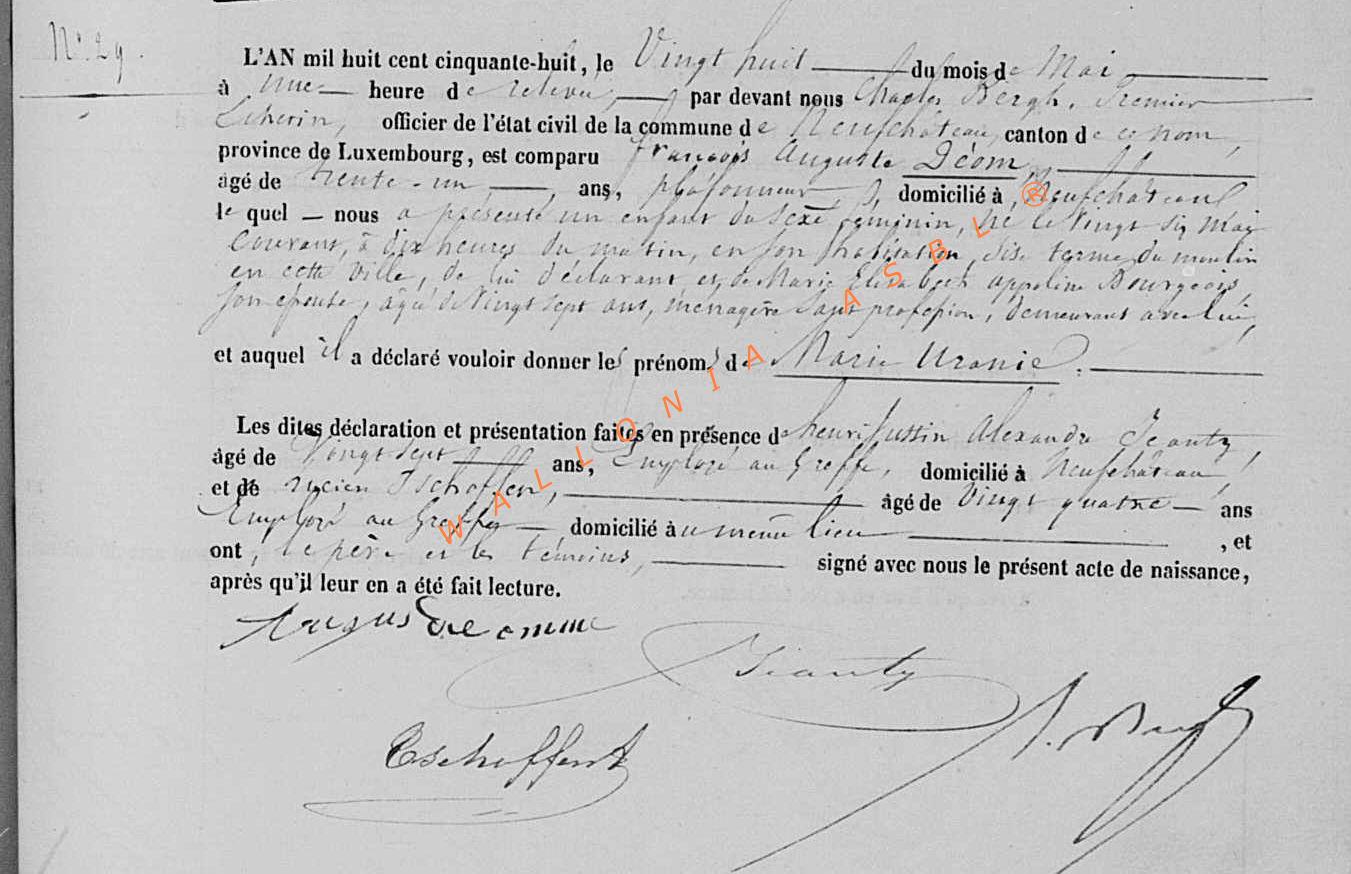 N° 29.
L'AN mil huit cent cinquante-huit, le Vingt huit du mois de Mai,
à une heure de relevée, par devant nous Charles Bergh, Premier
Echevin, officier de l'état civil de la commune de Neufchâteau, canton de ce nom,
province de Luxembourg, est comparu François Auguste Déom,
âgé de trente-un ans, plafonneur, domicilié à Neufchâteau
le quel nous a présenté un enfant du sexe féminin, né le Vingt six Mai
courant, à dix heures du matin, en son habitation, sise terme du moulin
en cette ville, de lui déclarant et de Marie Elisabeth appoline Bourgeois,
son épouse, âgée de Vingt sept ans, menagère sans profession, demeurant avec lui,
et auquel il a déclaré vouloir donner les prénoms de Marie Uranie.
Les dites déclaration et présentation faites en présence de henri Justin Alexandre Jeanty,
âgé de Vingt sept ans, Employé au Greffe, domicilié à Neufchâteau,
et de Lucien Tschoffen, âgé de Vingt quatre ans
Employé au Greffe domicilié au même lieu, et
ont, le père et les témoins, signé avec nous le présent acte de naissance,
après qu'il leur en a été fait lecture.
Jeanty
Tschoffen
WALLONIA ASBL ®